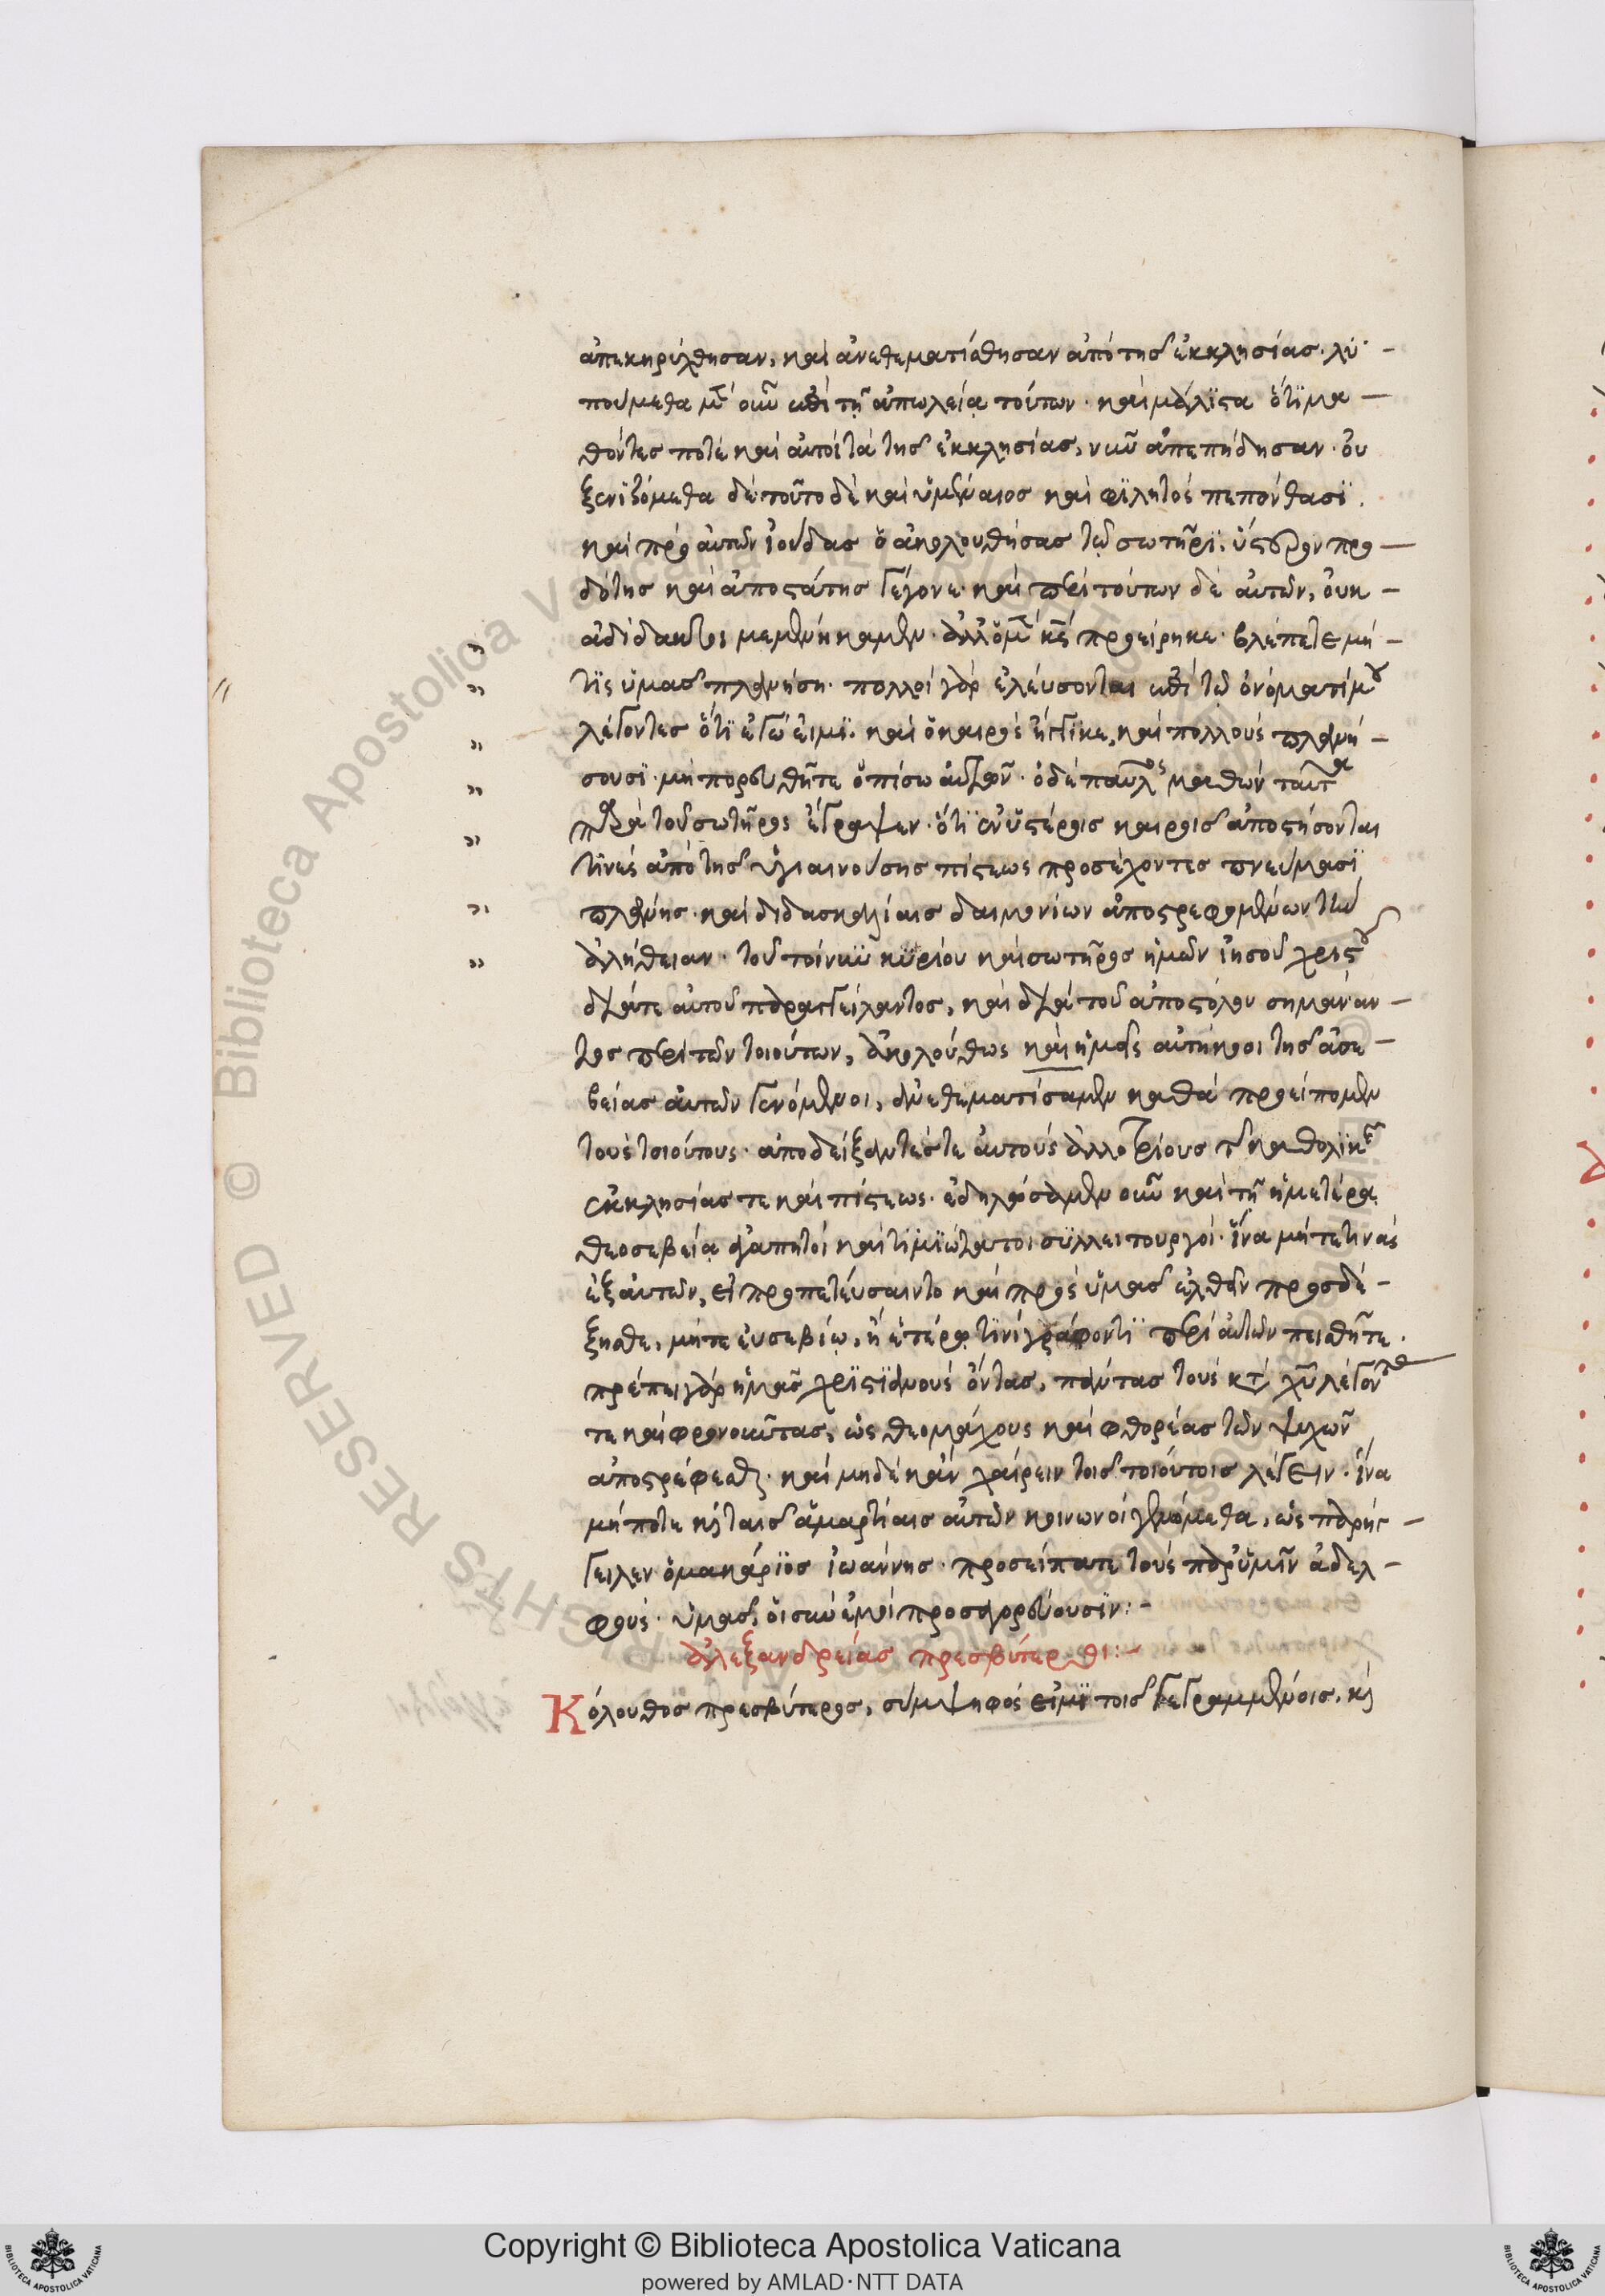 ἀπεκηρύχθησαν, καὶ ἀνεθεματίσθησαν ἀπὸ τῆς ἐκκλησίας. λυ-
πούμεθα μὲν οὖν ἐπὶ τῇ ἀπωλείᾳ τούτων. καὶ μάλιστα ὅτι μα-
θόντες ποτὲ καὶ αὐτοὶ τὰ τῆς ἐκκλησίας, νῦν ἀπεπήδησαν. οὐ
ξενιζόμεθα δέ· τοῦτο δὲ καὶ ὑμέναιος καὶ φιλητὸς πεπόνθασι.
καὶ πρὸ αὐτῶν ἰούδας ὁ ἀκολουθήσας τῷ σωτῆρι. ὕστερον προ-
δότης καὶ ἀποστάτης γέγονε. καὶ περὶ τούτων δὲ αὐτῶν, οὐκ
ἀδίδακτοι μεμενήκαμεν. ἀλλ' ὁ μὲν κς προείρηκε. βλέπετε μή
τις ὑμᾶς πλανήσῃ. πολλοὶ γὰρ ἐλεύσονται ἐπὶ τῷ ὀνόματί μου
λέγοντες ὅτι ἐγώ εἰμι. καὶ ὁ καιρὸς ἤγγικε, καὶ πολλοὺς πλανή-
σουσι. μὴ πορευθῆτε ὀπίσω αὐτῶν. ὁ δὲ παῦλος μαθὼν ταῦτα
παρὰ τοῦ σωτῆρος ἔγραψεν. ὅτι ἐν ὑστέροις καιροῖς ἀποστήσονται
τινὲς ἀπὸ τῆς ὑγιαινούσης πίστεως προσέχοντες πνεύμασι
πλάνης. καὶ διδασκαλίαις δαιμονίων ἀποστρεφομένων τὴν
ἀλήθειαν. τοῦ τοίνυν κυρίου καὶ σωτῆρος ἡμῶν ἰησοῦ χριστοῦ
διά τε αὐτοῦ παραγγείλαντος, καὶ διὰ τοῦ ἀποστόλου σημάναν-
τος περὶ τῶν τοιούτων, ἀκολούθως καὶ ἡμεῖς αὐτήκοοι τῆς ἀσε-
βείας αὐτῶν γενόμενοι, ἀνεθεματίσαμεν καθὰ προείπομεν
τοὺς τοιούτους. ἀποδείξαντές τε αὐτοὺς ἀλλοτρίους τῆς καθολικῆς
ἐκκλησίας τε καὶ πίστεως. ἐδηλώσαμεν οὖν καὶ τῇ ἡμετέρᾳ
θεοσεβείᾳ ἀγαπητοὶ καὶ τιμιώτατοι συλλειτουργοί. ἵνα μήτε τινὰς
ἐξ αὐτῶν, εἰ προπετεύσαιντο καὶ πρὸς ὑμᾶς ἐλθεῖν προσδέ-
ξησθε, μήτε εὐσεβίῳ, ἢ ἑτέρῳ τινὶ γράφοντι περὶ αὐτῶν πεισθῆτε.
πρέπει γὰρ ἡμᾶς χριστιανοὺς ὄντας, πάντας τοὺς κατὰ χυ λέγοντάς
τε καὶ φρονοῦντας, ὡς θεομάχους καὶ φθορέας τῶν ψυχῶν
ἀποστρέφεσθαι. καὶ μηδὲ κἂν χαίρειν τοῖς τοιούτοις λέγειν. ἵνα
μήποτε καὶ ταῖς ἁμαρτίαις αὐτῶν κοινωνοὶ γενόμεθα, ὡς παρήγ-
γειλεν ὁ μακάριος ἰωάννης. προσείπατε τοὺς παρ' ὑμῖν ἀδελ-
φούς. ὑμᾶς, οἱ σὺν ἐμοὶ προσαγορεύουσιν:-
ἀλεξανδρείας πρεσβύτεροι:-
Κόλουθος πρεσβύτερος, σύμψηφός εἰμι τοῖς γεγραμμένοις, καὶ
Copyright © Biblioteca Apostolica Vaticana
powered by AMLAD·NTT DATA